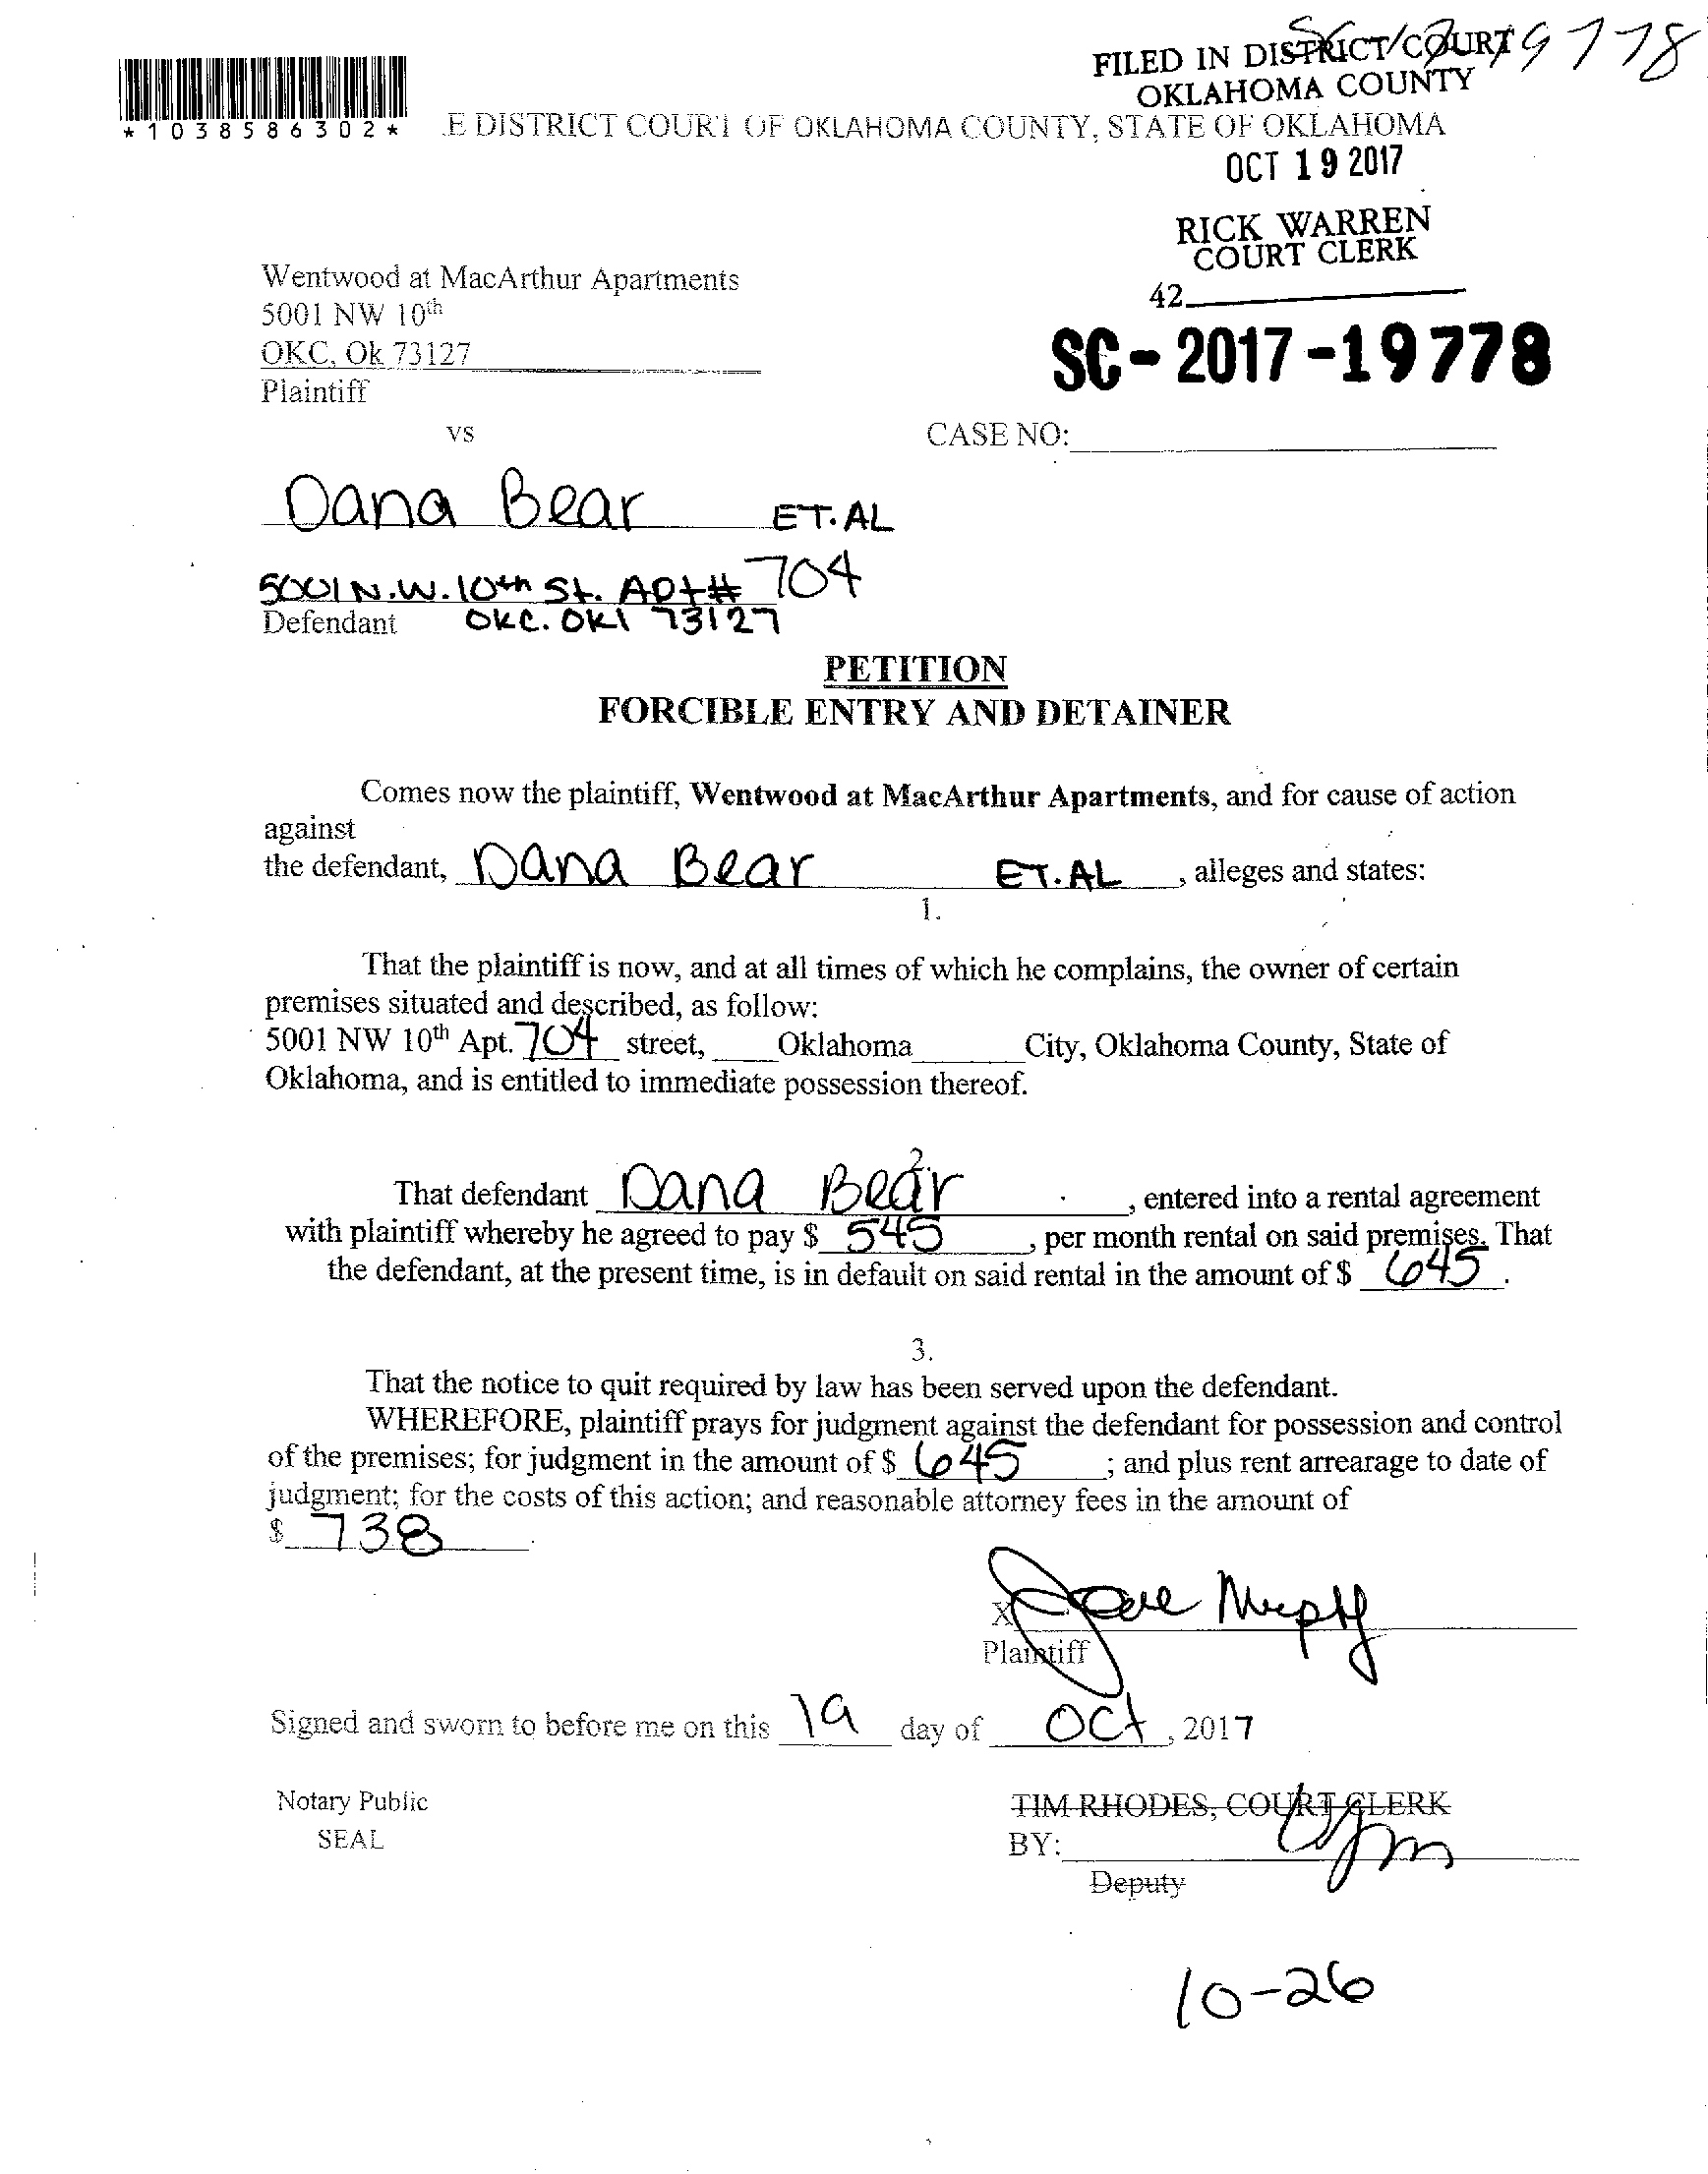 SC/17/19778
FILED IN DISTRICT COURT
OKLAHOMA COUNTY
*1038586302*
E DISTRICT COURT OF OKLAHOMA COUNTY, STATE OF OKLAHOMA
OCT 19 2017
RICK WARREN
COURT CLERK
42
Wentwood at MacArthur Apartments
5001 NW 10th
OKC, Ok 73127
Plaintiff
SC-2017-19778
vs
CASE NO:
Dana Bear ET.AL
5001 N.W. 10th St. Apt# 704
Defendant OKC. OKl 73127
PETITION
FORCIBLE ENTRY AND DETAINER
Comes now the plaintiff, Wentwood at MacArthur Apartments, and for cause of action
against
the defendant, Dana Bear ET.AL, alleges and states:
1.
That the plaintiff is now, and at all times of which he complains, the owner of certain
premises situated and described, as follow:
5001 NW 10th Apt. 704 street, Oklahoma City, Oklahoma County, State of
Oklahoma, and is entitled to immediate possession thereof.
2.
That defendant Dana Bear, entered into a rental agreement
with plaintiff whereby he agreed to pay $ 545, per month rental on said premises. That
the defendant, at the present time, is in default on said rental in the amount of $ 645.
3.
That the notice to quit required by law has been served upon the defendant.
WHEREFORE, plaintiff prays for judgment against the defendant for possession and control
of the premises; for judgment in the amount of $ 645; and plus rent arrearage to date of
judgment; for the costs of this action; and reasonable attorney fees in the amount of
$ 738.
X
Murphy
Plaintiff
Signed and sworn to before me on this 19 day of Oct, 2017
Notary Public
SEAL
TIM RHODES, COURT CLERK
BY:
Deputy
10-26